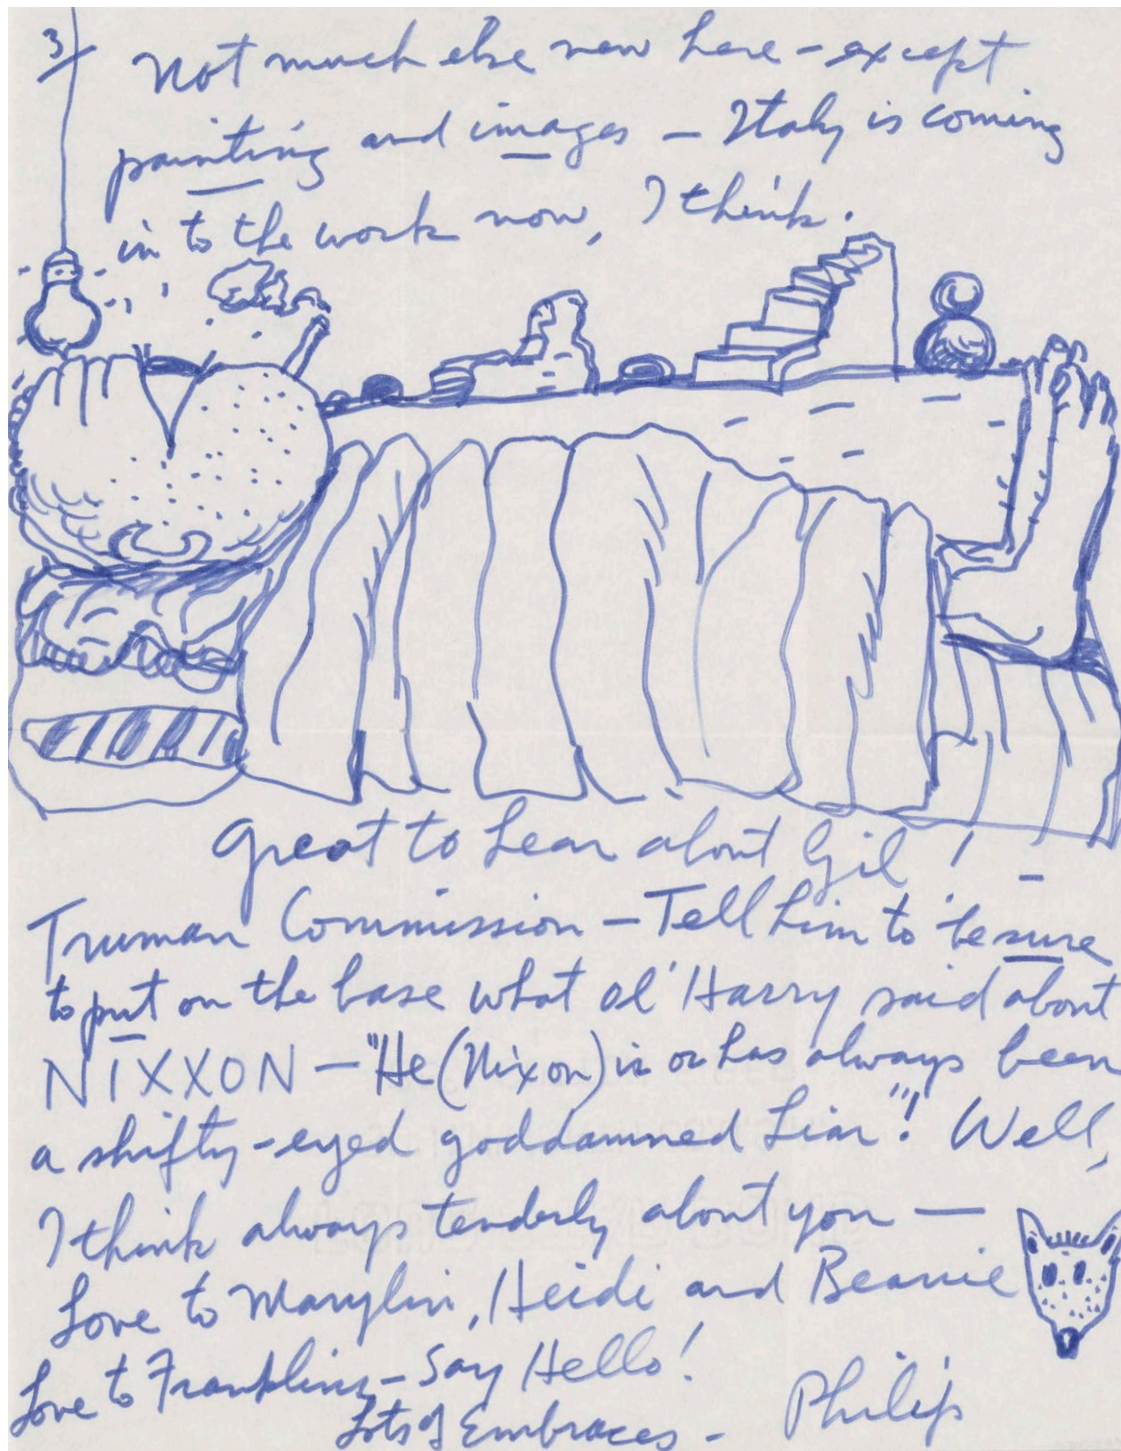 3/
Not much else new here – except
painting and images – Italy is coming
in to the work now, I think.
Great to hear about Gil!
Truman Commission – Tell him to be sure
to put on the base what ol' Harry said about
NIXXON – "He (Nixon) is or has always been
a shifty-eyed goddamned Liar"! Well,
I think always tenderly about you —
Love to Marylin, Heidi and Beanie
Love to Franklins – Say Hello!
Lots of Embraces –
Philip